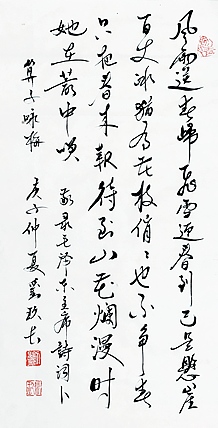 风雨送春归飞雪迎春到已是悬崖
百丈冰犹有花枝俏俏也不争春
只把春来报待到山花烂漫时
她在丛中唤 敬录毛泽东主席诗词卜
算子咏梅 庚子仲夏